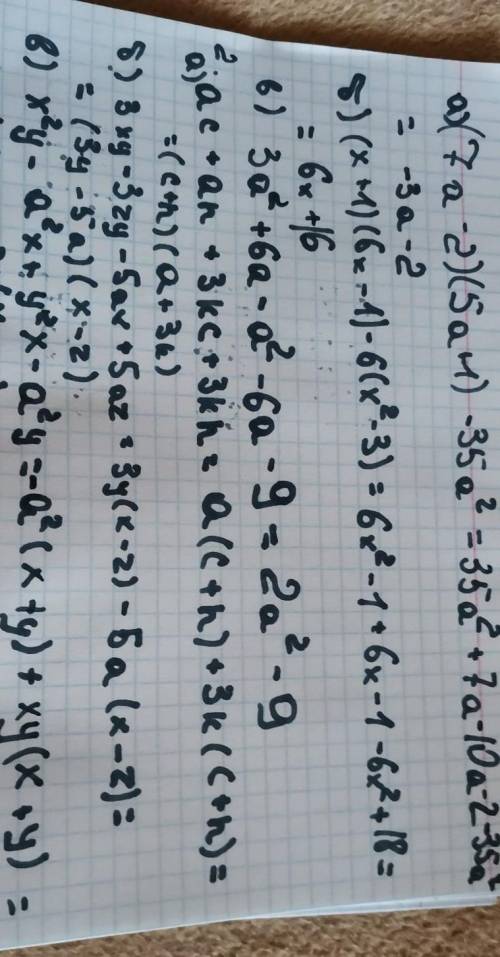 а) (7a - 2)(5a+1) - 35a² = 35a² + 7a - 10a - 2 - 35a²
= -3a - 2
б) (x + 1)(6x - 1) - 6(x² - 3) = 6x² - 1 + 6x - 1 - 6x² + 18 =
= 6x + 16
в) 3a² + 6a - a² - 6a - 9 = 2a² - 9
2
а) ac + an + 3kc + 3kn = a(c + n) + 3k(c + n) =
= (c + n)(a + 3k)
б) 3xy - 3zy - 5ax + 5az = 3y(x - z) - 5a(x - z) =
= (3y - 5a)(x - z)
в) x²y - a²x + y²x - a²y = -a²(x + y) + xy(x + y) =